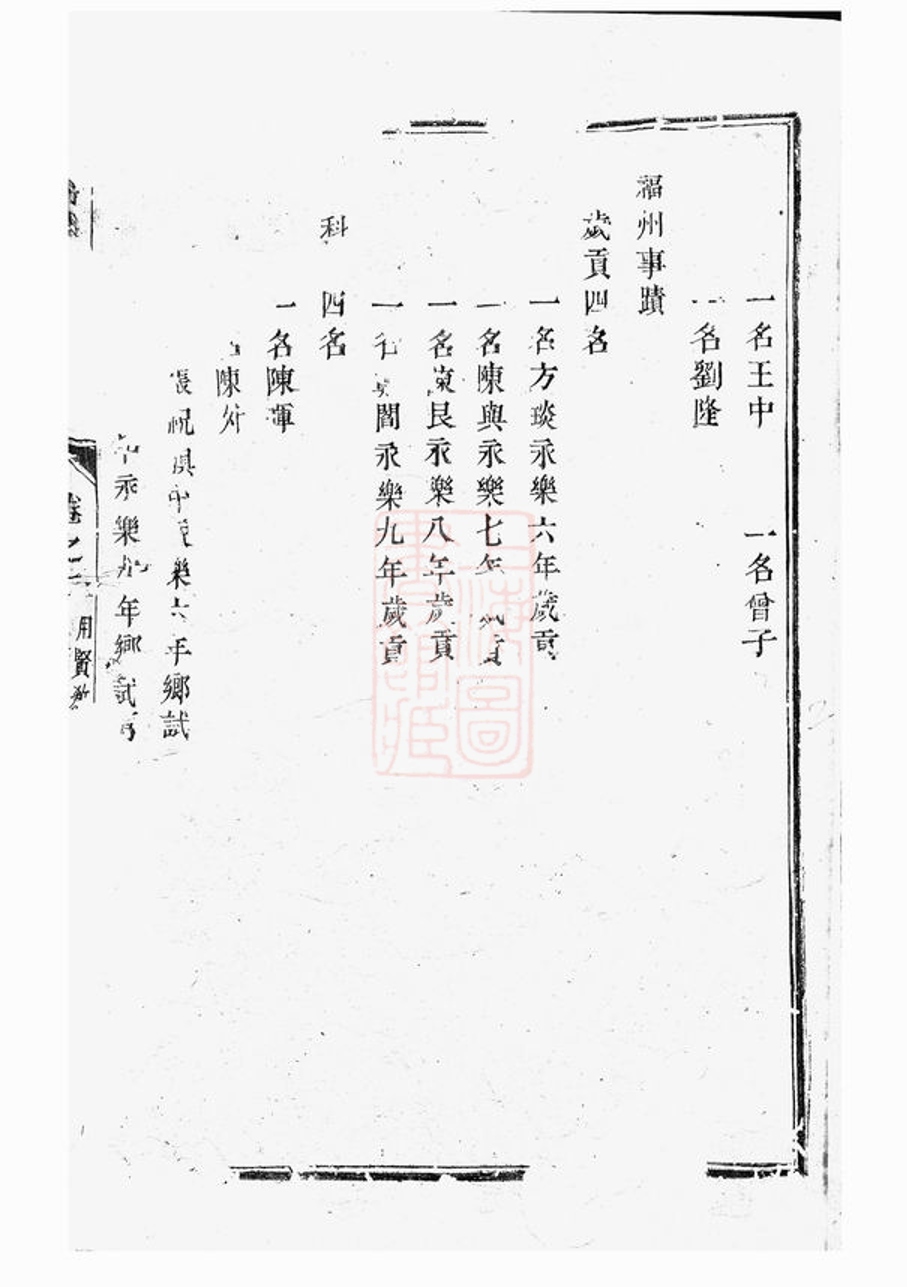 一名王中　　一名曾子
一名劉隆
福州事蹟
歲貢四名
一名方琰永樂六年歲貢
一名陳與永樂七年歲貢
一名良永樂八年歲貢
一名閭永樂九年歲貢
科　四名
一名陳暉
陳
祝樂六年鄉試
永樂九年鄉試
卷之二
用賢
上海圖書館藏